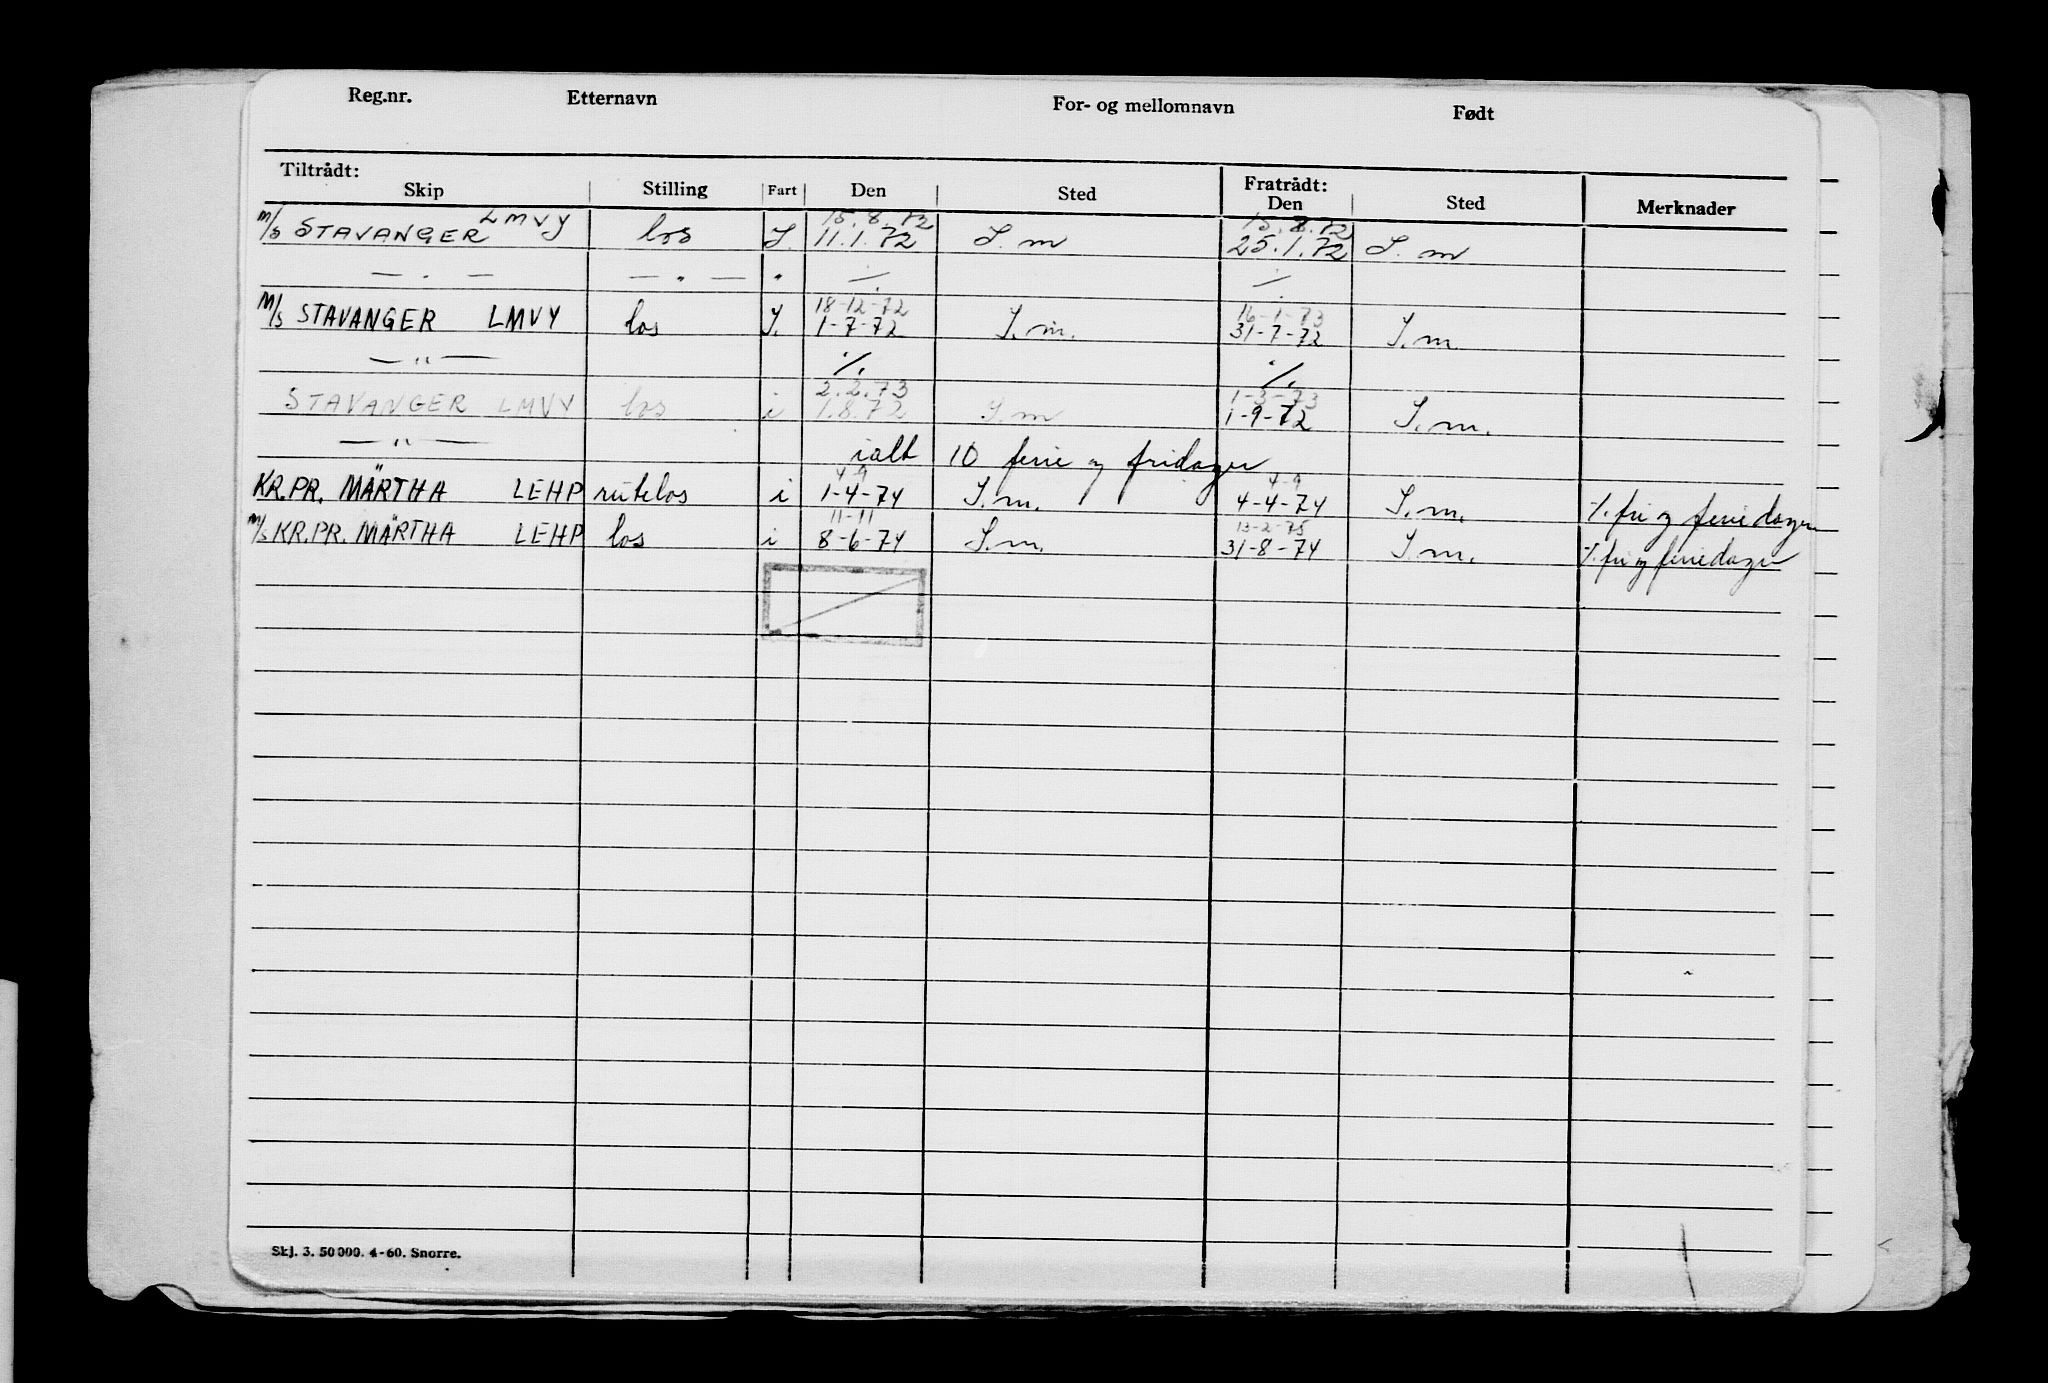 Reg.nr. Etternavn For- og mellomnavn Født
Tiltrådt: Fratrådt:
Skip Stilling Fart Den Sted Den Sted Merknader
15.8.72 15.8.72
M/S STAVANGER LMVY los I. 11.1.72 I.m 25.1.72 I.m
— " — — " — " ./. ./.
18-12-72 16-1-73
M/S STAVANGER LMVY los I. 1-7-72 I.m. 31-7-72 I.m
— " — ./. ./.
2.2.73 1-3-73
STAVANGER LMVY los i 1.8.72 I.m 1-9-72 I.m.
— " — ialt 10 ferie og fridager
4-9 4-9
KR.PR. MÄRTHA LEHP rutelos i 1-4-74 I.m. 4-4-74 I.m. ./. fri og feriedager
11-11 13-2-75
M/S KR.PR. MÄRTHA LEHP los i 8-6-74 I.m. 31-8-74 I.m. ./. fri og feriedager
Skj. 3. 50 000. 4-60. Snorre.